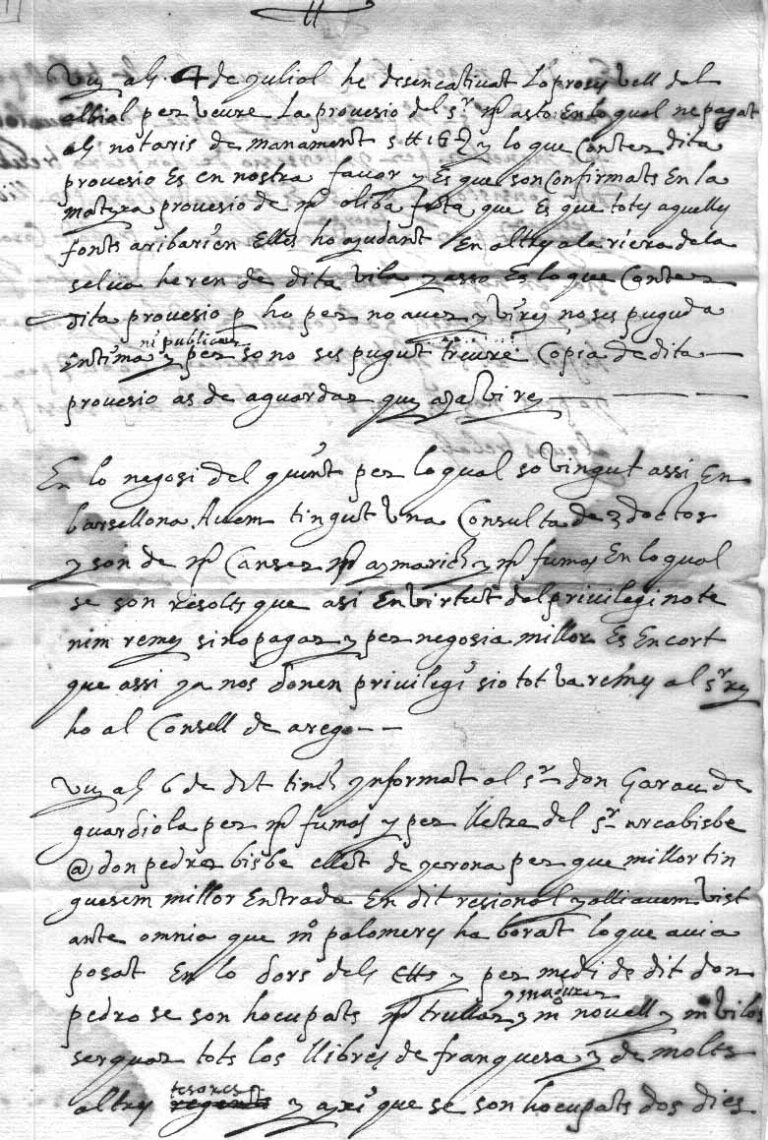 Vuy als 4 de juliol he desencativat lo proses vell del
altial per veure la provesio del sr mr asto en lo qual ne pagat
als notaris de manament s tt 16 y lo que conter dita
provesio es en nostra favor y es que son confirmats en la
matexa provesio de mr oliba feta que es que totes aquelles
fonts aribarien elles ho ajudant en altres a la riera de la
selva heren de dita vila y asso es lo que conter
dita provesio p ho per no aver y virey no ses puguda
entima ni publicar y per so no ses pugut treure copia de dita
provesio as de aguardar que aja virey
En lo negosi del quint per lo qual so vingut assi en
barsellona Avem tingut una consulta de 3 doctos
y son de mr Canser mr aymarich y mr fumas en lo qual
se son resolts que asi en virtut del privilegi no te
nim remey sino pagar y per negosia millor es en cort
que assi ja nos donen privilegi sio tot va remes al sr rey
ho al Consell de arego
Vuy als 6 de dit tinch ynformat al sr don Garau de
guardiola per mr fumas y per lletre del sr arcabisbe
@ don pedro bisbe ellet de gerona per que millor tin
guesem millor entrada en dit resional y alli avem vist
ante omnia que mo palomeres ha borat lo que avia
posat en lo dors dels ctts y per medi de dit don
pedro se son hocupats mr trullar y maduxer y mr novell y mr vilos
serquar tots los llibres de franquesa y de moltes
altres tesores y axi que se son hocupats dos dies